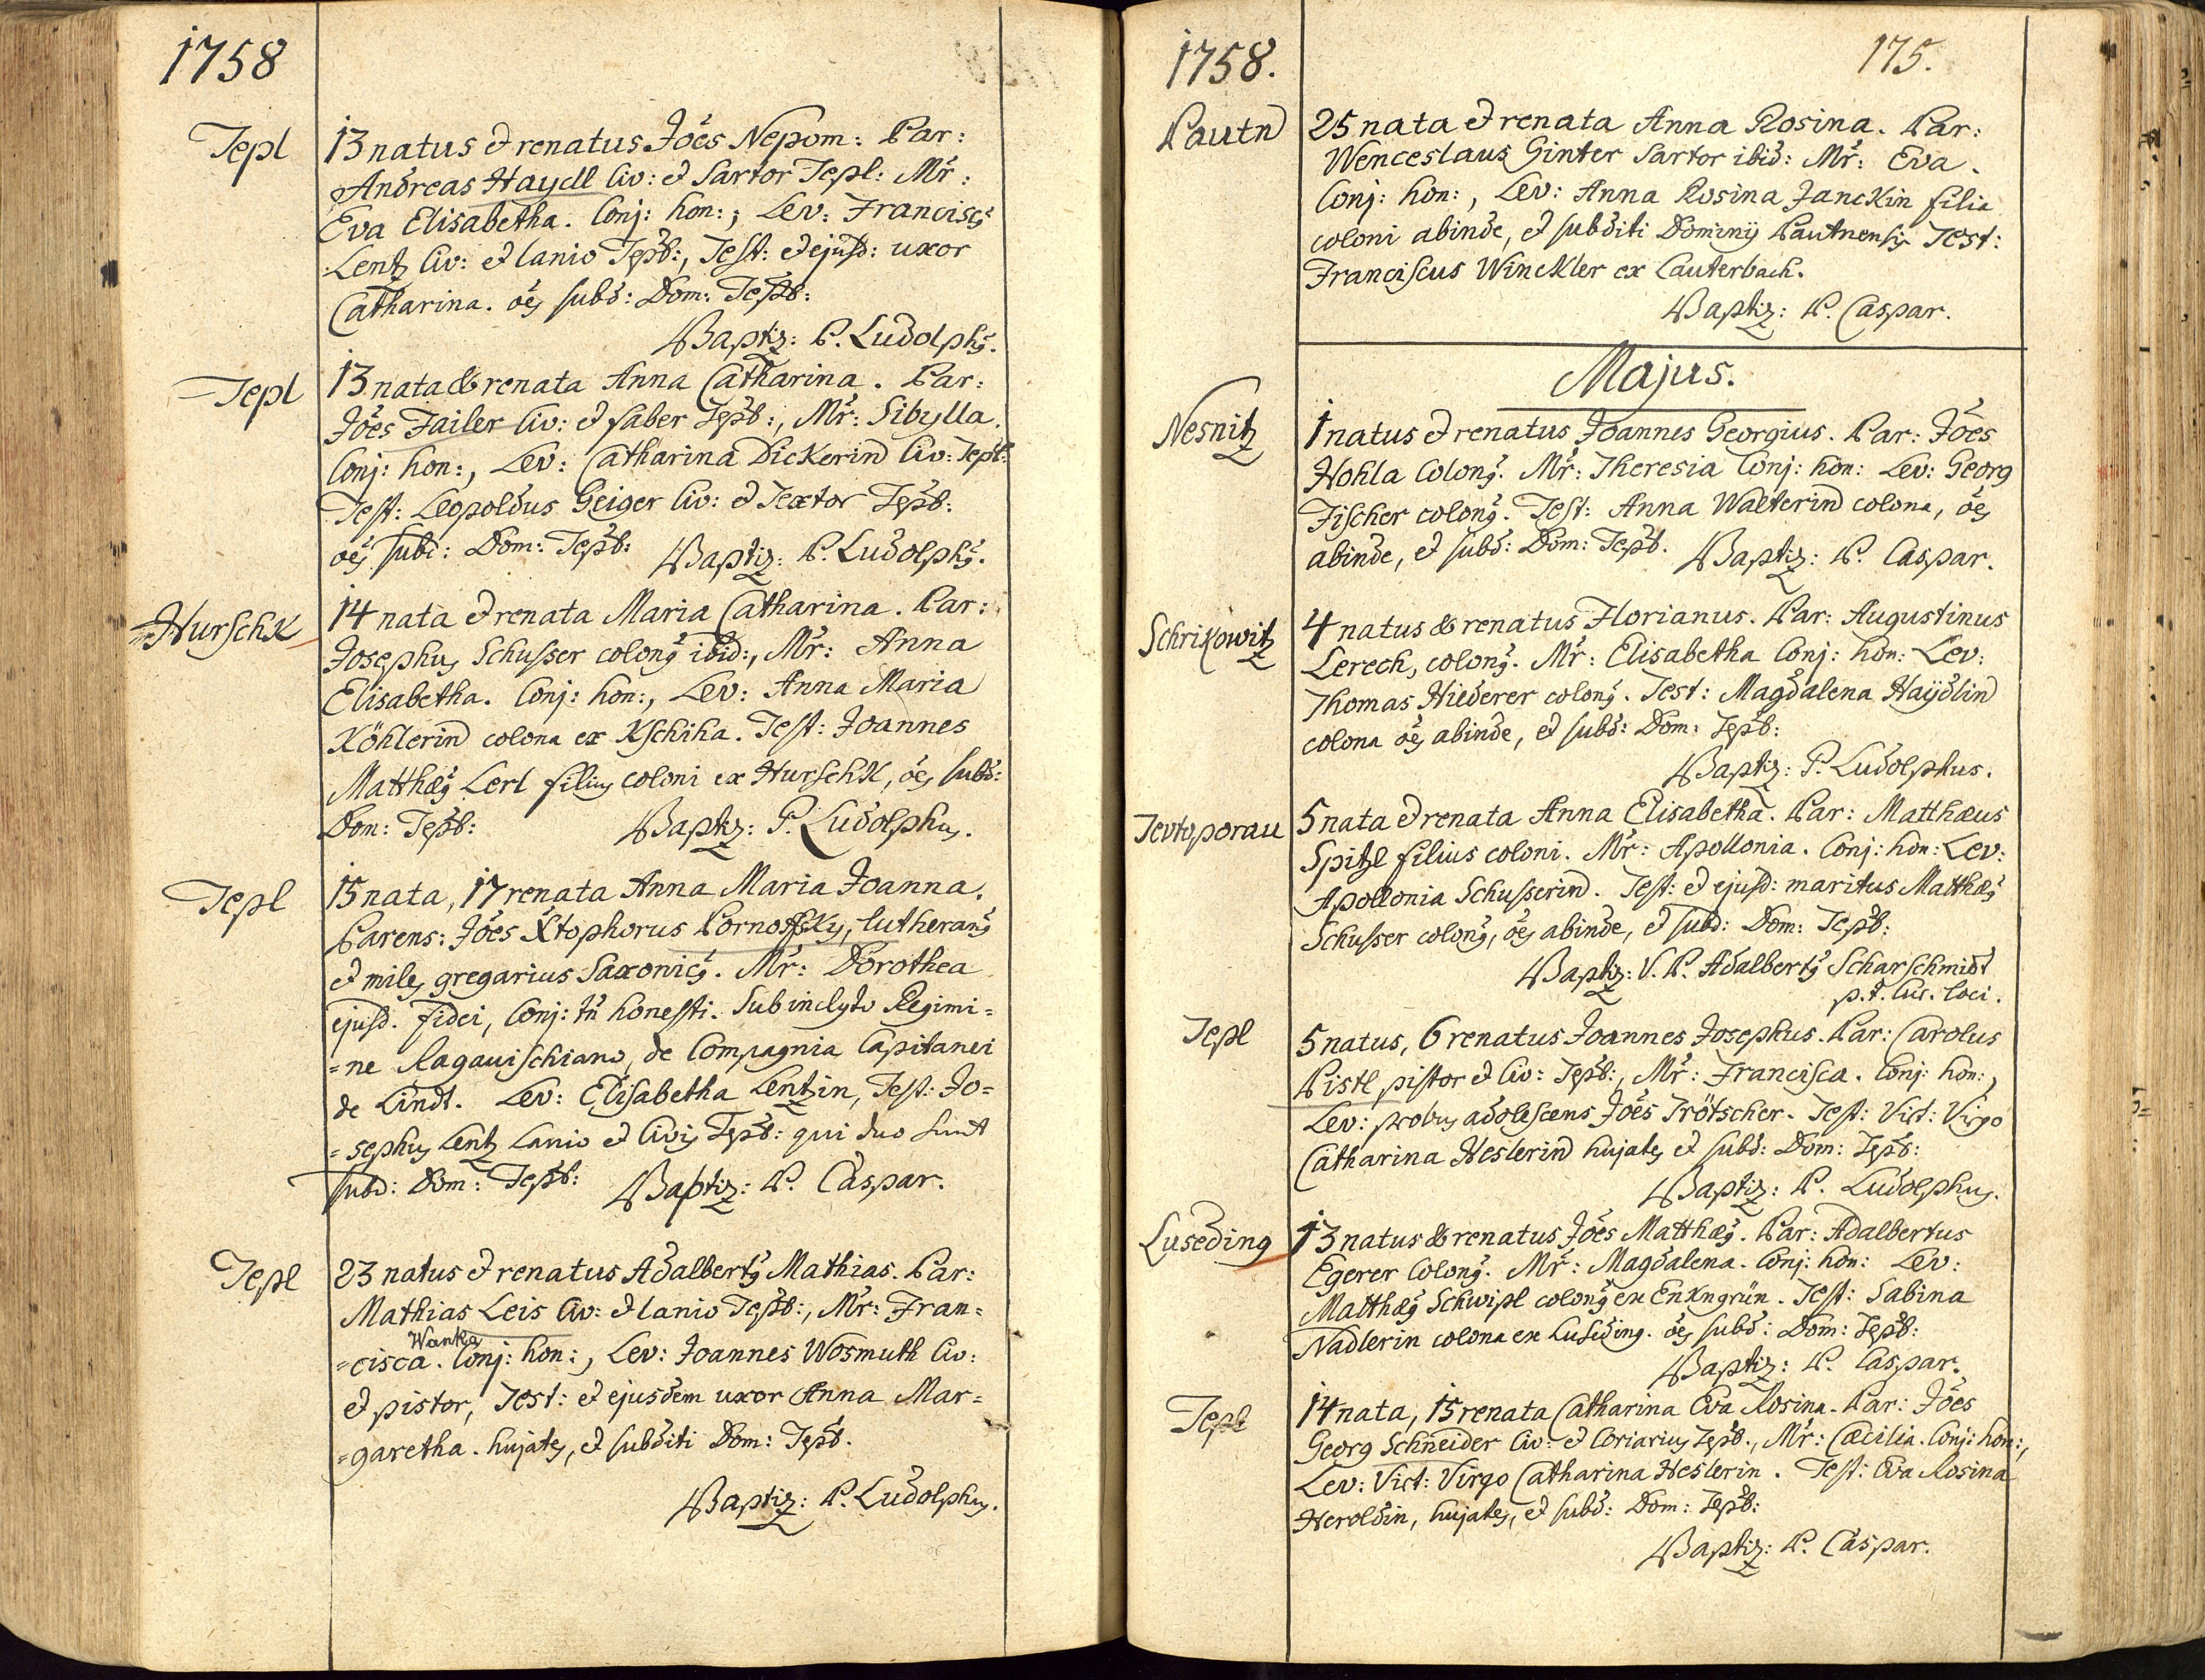 1758
Tepl
13 natus et renatus Jōēs Nepom: Par:
Andreas Haydl Civ: et Sartor Tepl: Mr:
Eva Elisabetha. Conj: hon:, Lev: Franciscus
Lentz Civ: et lanio Tepl:, Test: et ejusd: uxor
Catharina. ōēs subd: Dom: Tepl:
Baptiz: P. Ludolphus.
Tepl
13 nata & renata Anna Catharina. Par:
Jōēs Failer Civ: et faber Tepl:, Mr: Sibylla.
Conj: hon:, Lev: Catharina Dickerin Civ: Tepl:
Test: Leopoldus Geiger Civ: et Textor Tepl:
ōēs subd: Dom: Tepl: Baptiz: P. Ludolphus.
Hurschk
14 nata et renata Maria Catharina. Par:
Josephus Schusser colonus ibid:, Mr: Anna
Elisabetha. Conj: hon:, Lev: Anna Maria
Köhlerin colona ex Kschiha. Test: Joannes
Matthæus Lerl filius coloni ex Hurschk, ōēs subd:
Dom: Tepl: Baptiz: P. Ludolphus.
Tepl
15 nata, 17 renata Anna Maria Joanna.
Parens: Jōēs Xtophorus Pornoffsky, lutheranus
et miles gregarius Saxonicus. Mr: Dorothea
ejusd. fidei, Conj: tn̄ honesti. Sub inclyto Regimi=
=ne Ragauischiano, de Compagnia Capitanei
de Lindt. Lev: Elisabetha Lentzin, Test: Jo=
=sephus Lentz Lanio et Civis Tepl: qui duo sunt
subd: Dom: Tepl: Baptiz: P. Caspar.
Tepl
23 natus et renatus Adalbertus Mathias. Par:
Mathias Leis Civ: et lanio Tepl:, Mr: Fran=
Wanka
=cisca. Conj: hon:, Lev: Joannes Wosmuth Civ:
et pistor, Test: et ejusdem uxor Anna Mar=
=garetha. hujates, et subditi Dom: Tepl.
Baptiz: P. Ludolphus.
1758.
175.
Pautn
25 nata et renata Anna Rosina. Par:
Wenceslaus Ginter Sartor ibid: Mr: Eva.
Conj: hon:, Lev: Anna Rosina Janckin filia
coloni abinde, et subditi Dominij Pautnensis Test:
Franciscus Winckler ex Lauterbach.
Baptiz: P. Caspar.
Majus.
Nesnitz
1 natus et renatus Joannes Georgius. Par: Jōēs
Hohla Colonus. Mr: Theresia Conj: hon: Lev: Georg
Fischer colonus. Test: Anna Walterin colona, ōēs
abinde, et subd: Dom: Tepl. Baptiz: P. Caspar.
Schrikowitz
4 natus & renatus Florianus. Par: Augustinus
Lerech, colonus. Mr: Elisabetha Conj: hon: Lev:
Thomas Hiederer colonus. Test: Magdalena Haÿdlin
colona ōēs abinde, et subd: Dom: Tepl:
Baptiz: P. Ludolphus.
Tevtoporau
5 nata et renata Anna Elisabetha. Par: Matthæus
Spitzl filius coloni. Mr: Apollonia. Conj: hon: Lev:
Apollonia Schusserin. Test: et ejusd: maritus Matthæus
Schusser colonus, ōēs abinde, et subd: Dom: Tepl:
Baptiz: V. P. Adalbertus Scharschmidt
p.t. Cur. loci.
Tepl
5 natus, 6 renatus Joannes Josephus. Par: Carolus
Pistl, pistor et Civ: Tepl:, Mr: Francisca. Conj: hon:,
Lev: probus adolescens Jōēs Trötscher. Test: Vict: Virgo
Catharina Heslerin hujates et subd: Dom: Tepl:
Baptiz: P. Ludolphus.
Luseding
13 natus & renatus Jōēs Matthæus. Par: Adalbertus
Egerer Colonus. Mr: Magdalena. Conj: hon: Lev:
Matthæus Schwipl colonus ex Enkngrün. Test: Sabina
Nadlerin colona ex Luseding. ōēs subd: Dom: Tepl:
Baptiz: P. Caspar.
Tepl
14 nata, 15 renata Catharina Eva Rosina. Par: Jōēs
Georg Schneider Civ: et Coriarius Tepl., Mr: Cæcilia. Conj: hon:,
Lev: Vict: Virgo Catharina Heslerin. Test: Eva Rosina
Heroldin, hujates, et subd: Dom: Tepl:
Baptiz: P. Caspar.